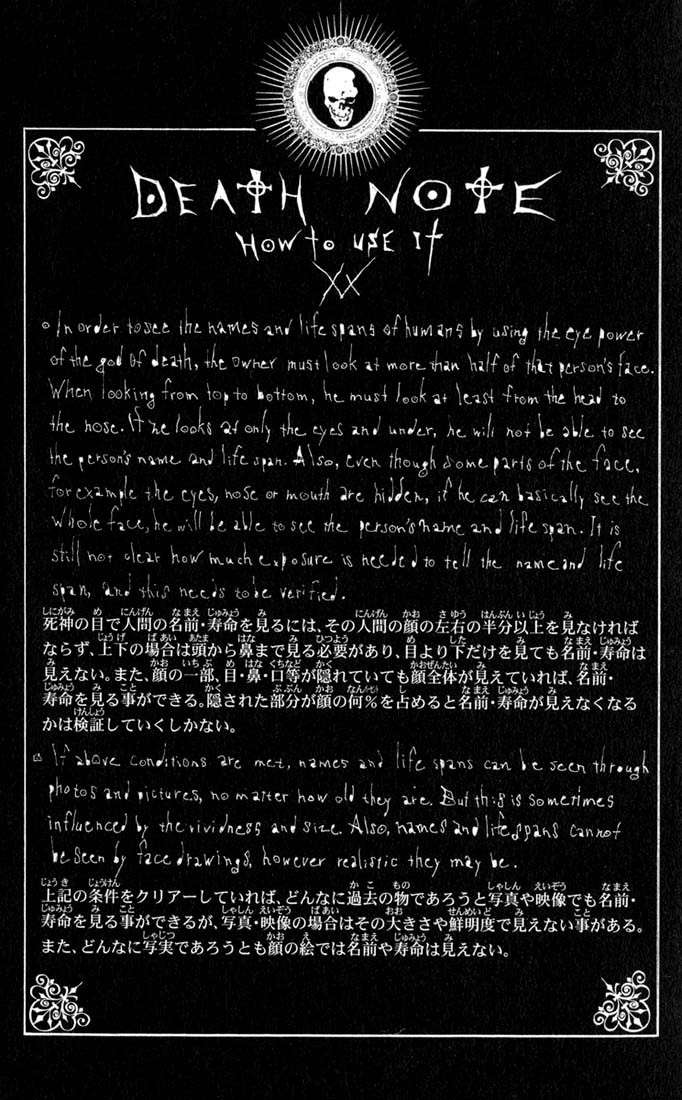 DEATH NOTE
HOW to USE It
XX
○ In order to see the names and life spans of humans by using the eye power
of the god of death, the owner must look at more than half of that person's face.
When looking from top to bottom, he must look at least from the head to
the nose. If he looks at only the eyes and under, he will not be able to see
the person's name and life span. Also, even though some parts of the face,
for example the eyes, nose or mouth are hidden, if he can basically see the
whole face, he will be able to see the person's name and life span. It is
still not clear how much exposure is needed to tell the name and life
span, and this needs to be verified.
死神の目で人間の名前・寿命を見るには、その人間の顔の左右の半分以上を見なければ
ならず、上下の場合は頭から鼻まで見る必要があり、目より下だけを見ても名前・寿命は
見えない。また、顔の一部、目・鼻・口等が隠れていても顔全体が見えていれば、名前・
寿命を見る事ができる。隠された部分が顔の何%を占めると名前・寿命が見えなくなる
かは検証していくしかない。
If above conditions are met, names and life spans can be seen through
photos and pictures, no matter how old they are. But this is sometimes
influenced by the vividness and size. Also, names and life spans cannot
be seen by face drawings, however realistic they may be.
上記の条件をクリアーしていれば、どんなに過去の物であろうと写真や映像でも名前・
寿命を見る事ができるが、写真・映像の場合はその大きさや鮮明度で見えない事がある。
また、どんなに写実であろうとも顔の絵では名前や寿命は見えない。